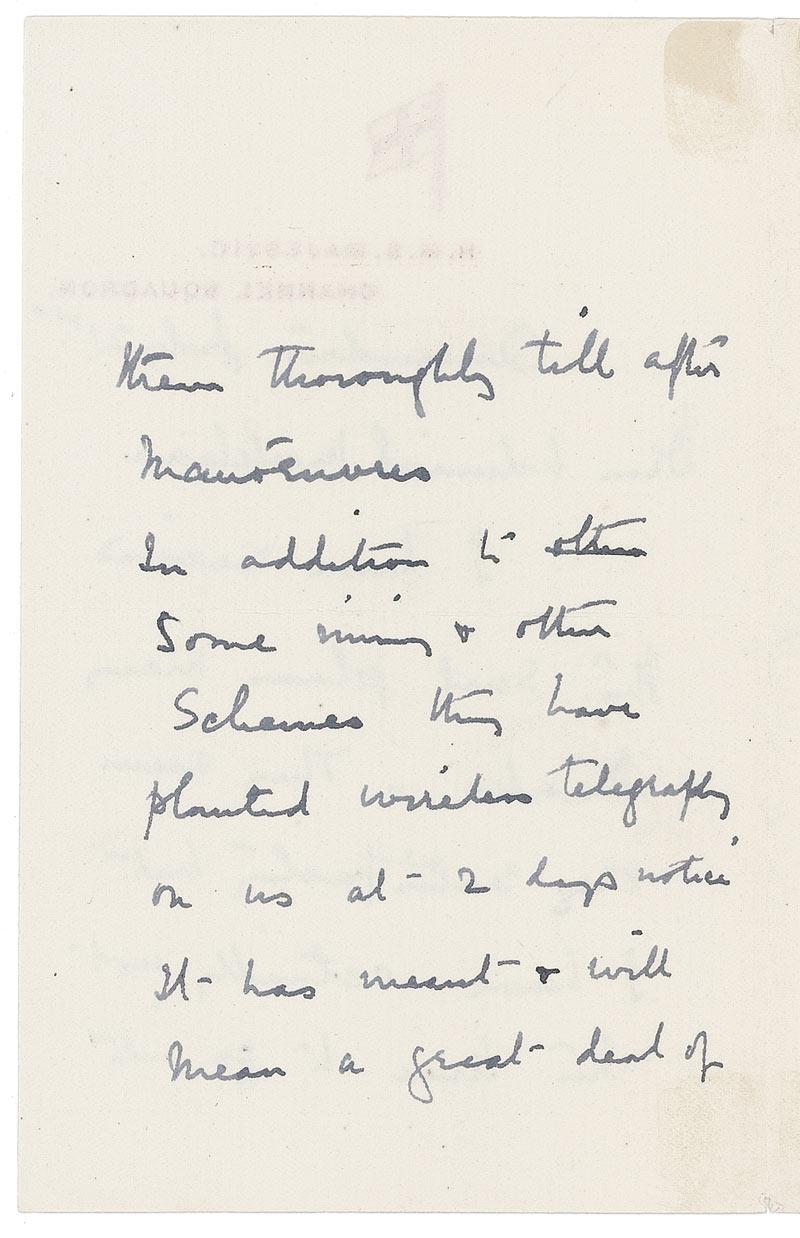 them thoroughly till after
Manoeuvres
In addition to other
Some mining & other
Schemes they have
planted wireless telegraphy
on us at 2 days notice
It has meant & will
mean a great deal of